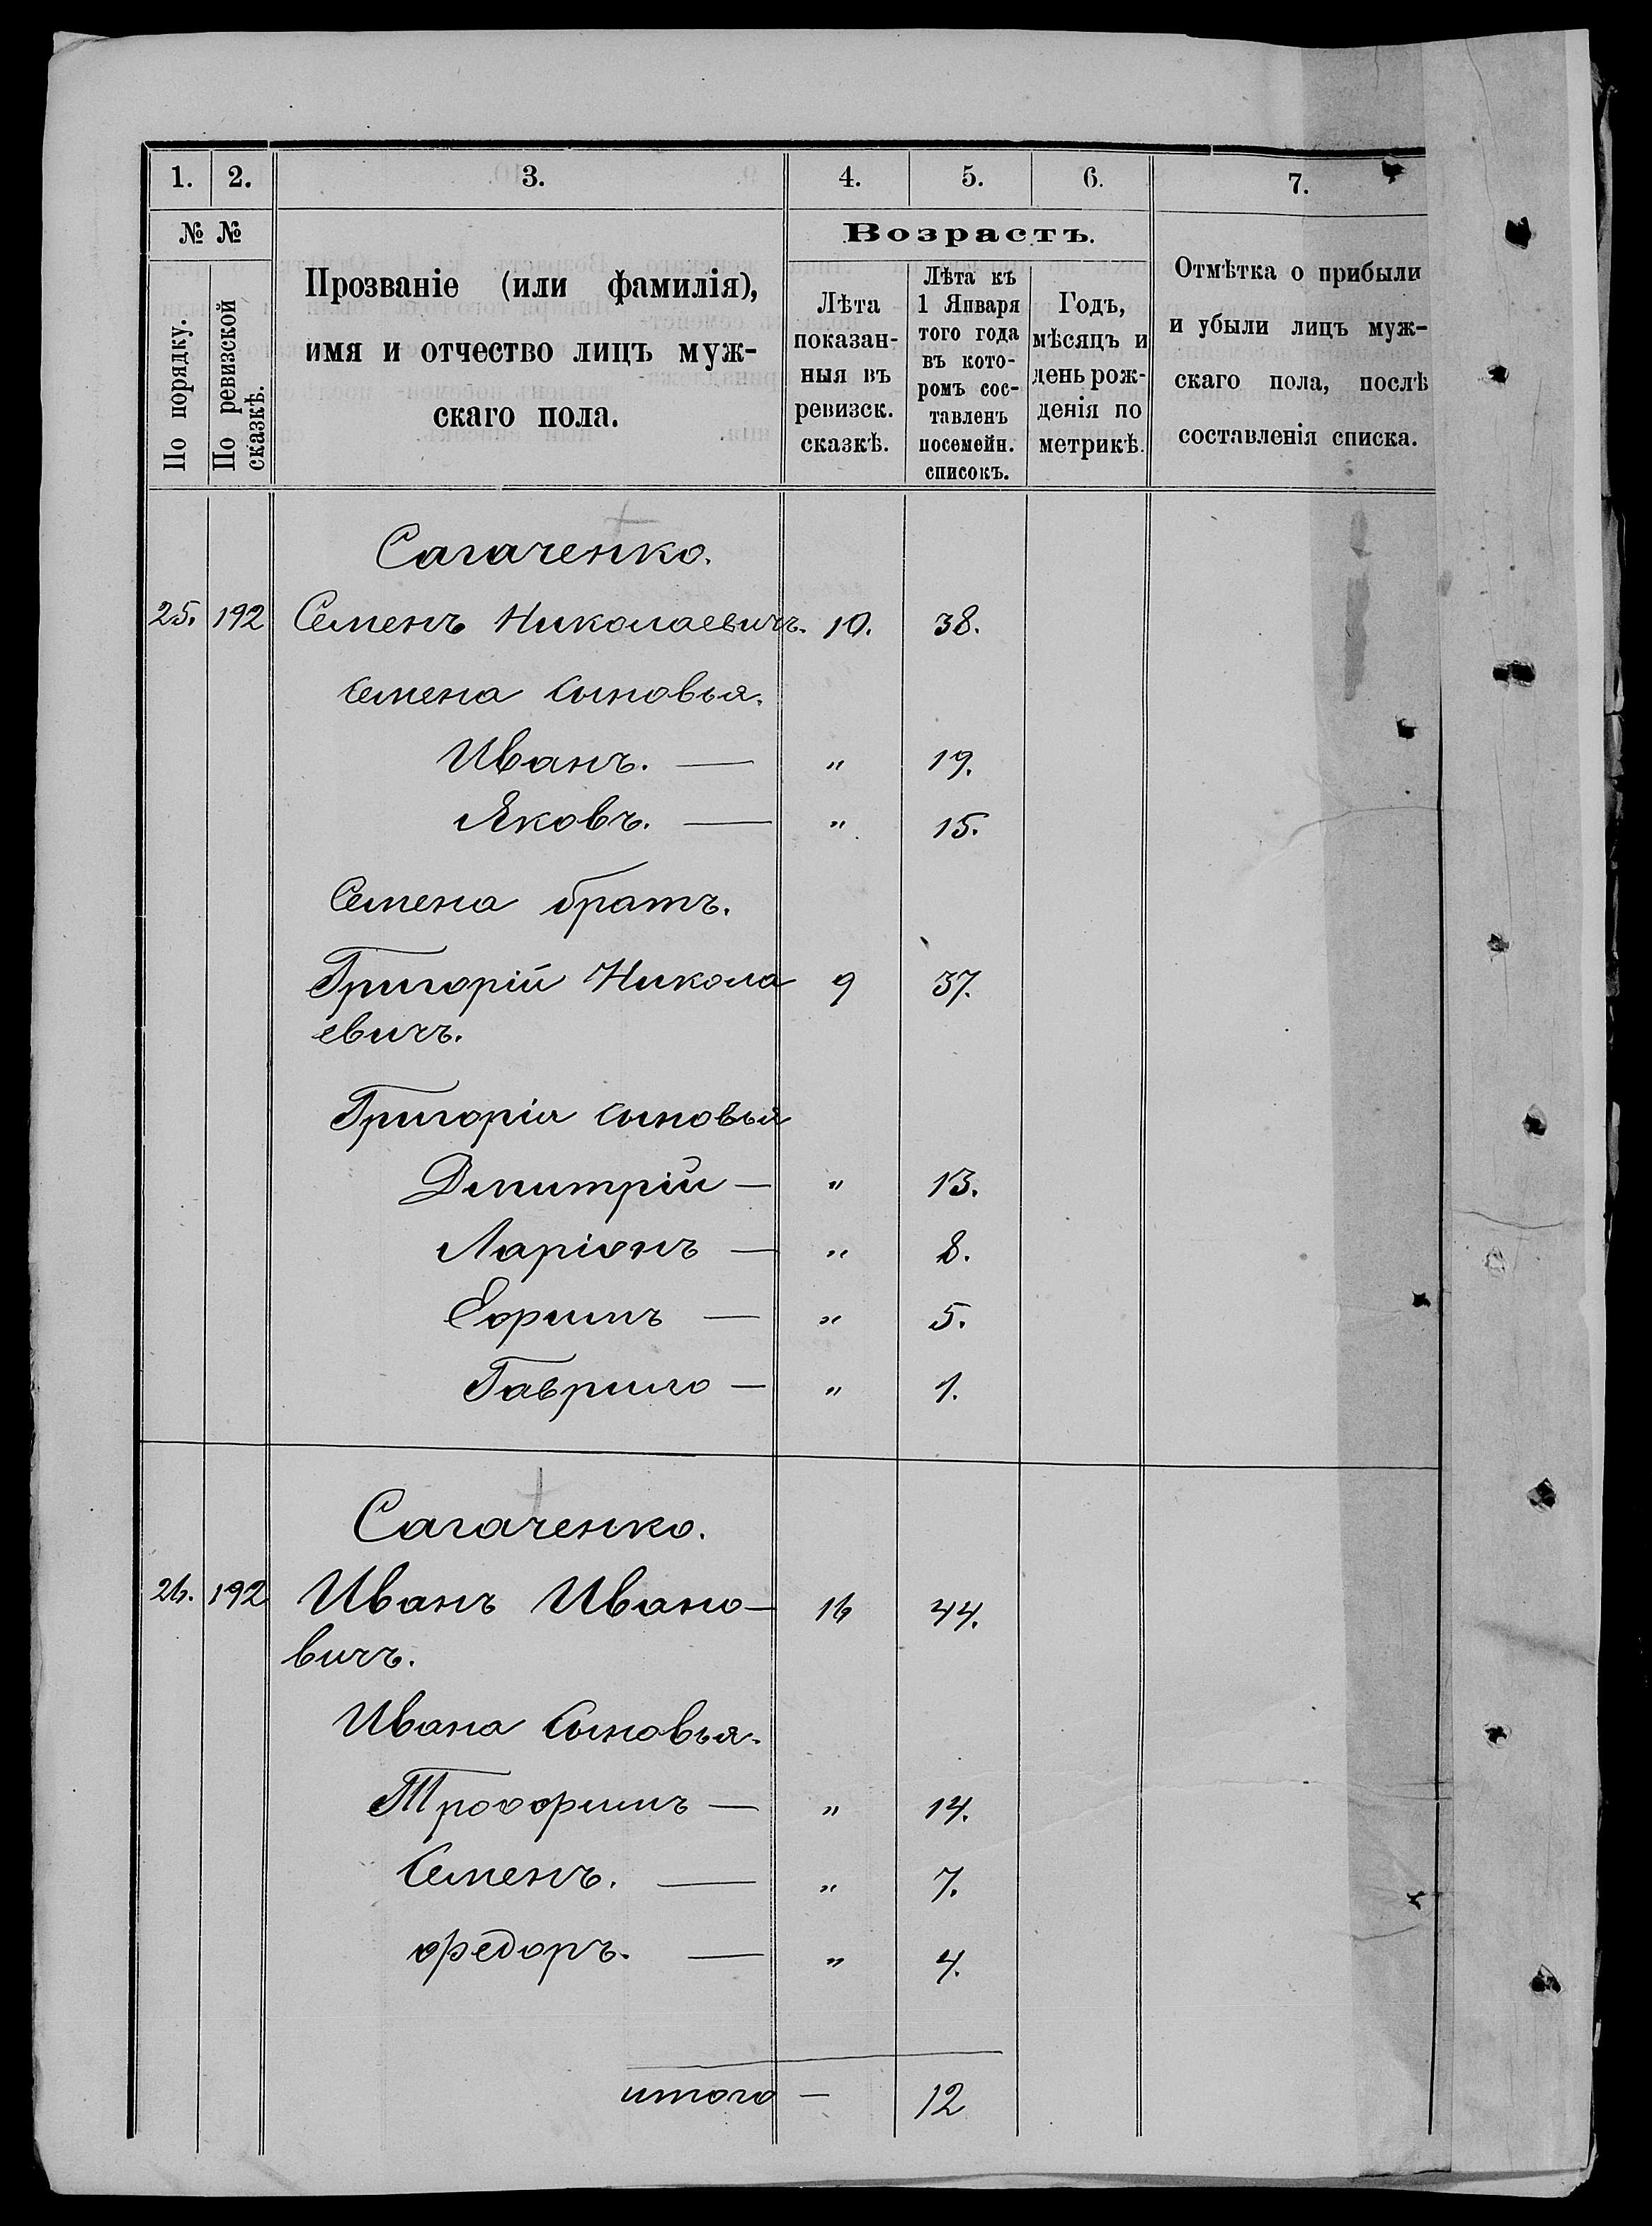 1. 2. 3. 4. 5. 6. 7.
№ №
По порядку.
По ревизской сказкѣ.
Прозваніе (или фамилія),
имя и отчество лицъ муж-
скаго пола.
Возрастъ.
Лѣта
показан-
ныя въ
ревизск.
сказкѣ.
Лѣта къ
1 Января
того года
въ кото-
ромъ сос-
тавленъ
посемейн.
списокъ.
Годъ,
мѣсяцъ и
день рож-
денія по
метрикѣ.
Отмѣтка о прибыли
и убыли лицъ муж-
скаго пола, послѣ
составленія списка.
Сагаченко.
25. 192 Семенъ Николаевичъ. 10. 38.
Семена сыновья.
Иванъ. — " 19.
Яковъ. — " 15.
Семена братъ.
Григорій Никола 9 37.
евичъ.
Григорія сыновья
Дмитрій — " 13.
Ларіонъ — " 8.
Ефимъ — " 5.
Гаврило — " 1.
Сагаченко.
26. 192 Иванъ Ивано- 16 44.
вичъ.
Ивана сыновья.
Трофимъ — " 14.
Семенъ. — " 7.
Федоръ. — " 4.
итого — 12